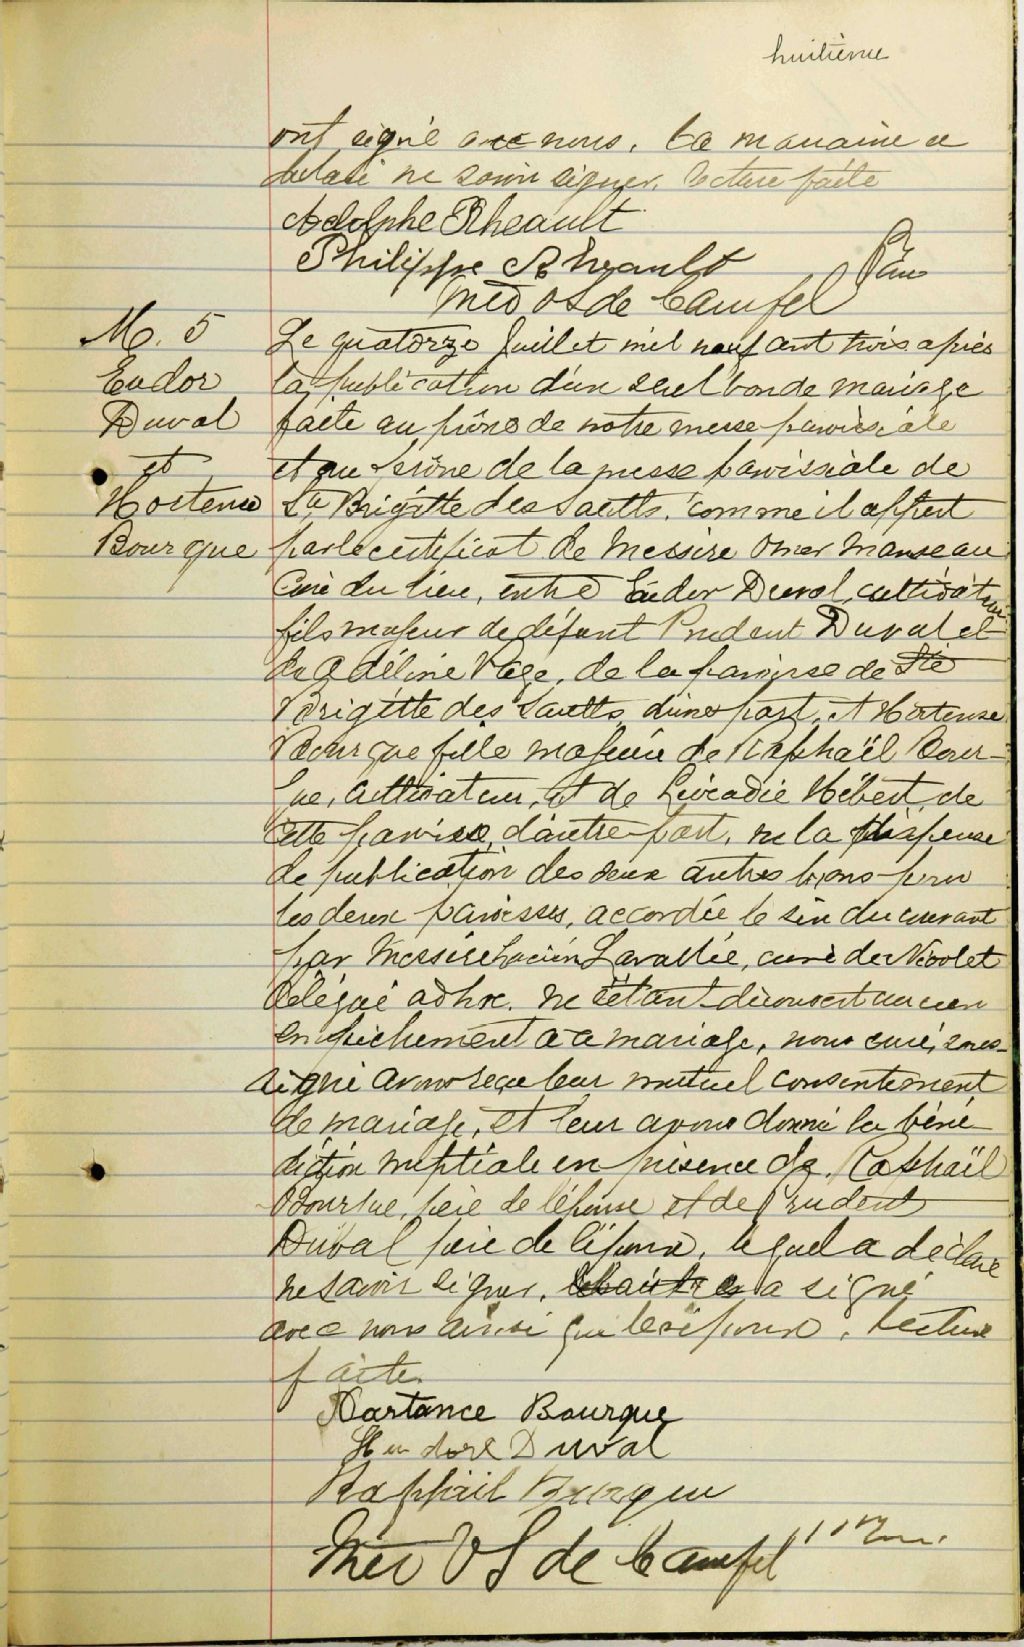 huitième
ont signé avec nous. La marraine a
déclaré ne savoir signer. Lecture faite
Adolphe Rheault
Philippe Rheault
de Camfel
M. 5
Eudor
Duval
et
Hortense
Bourque
Le quatorze Juillet mil neuf cent trois après
la publication d'un seul ban de mariage
faite au prône de notre messe paroissiale
et au prône de la messe paroissiale de
Ste Brigitte des Saults, comme il appert
par le certificat de Messire Omer Manseau
Curé du lieu, entre Eudor Duval, cultivateur
fils majeur de défunt Prudent Duval et
de Adéline Page, de la paroisse de Ste
Brigitte des Saults, d'une part, et Hortense
Bourque fille majeure de Raphaël Bour-
que, cultivateur, et de Léocadie Hébert, de
cette paroisse, d'autre part, vu la dispense
de publication des deux autres bans pour
les deux paroisses, accordée le six du courant
par Messire Lavallée, curé de Nicolet
délégué ad hoc. ne s'étant découvert aucun
empêchement à ce mariage, nous curé, sous-
signé avons reçu leur mutuel consentement
de mariage, et leur avons donné la béné-
diction nuptiale en présence de Raphaël
Bourque, père de l'épouse et de Prudent
Duval père de l'époux, lequel a déclaré
ne savoir signer, les autres a signé
avec nous ainsi que les époux. Lecture
faite.
Hartance Bourque
Duval
Raphaël Bourque
de Camfel